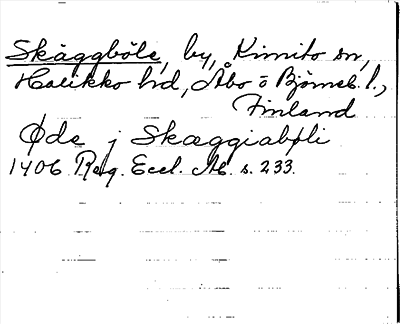 Skäggböle, by, Kimito sn,
Halikko hd, Åbo o Björneb. l.,
Finland
Øde j Skæggiabøli
1406 Reg. Eccl. Ab. s. 233.